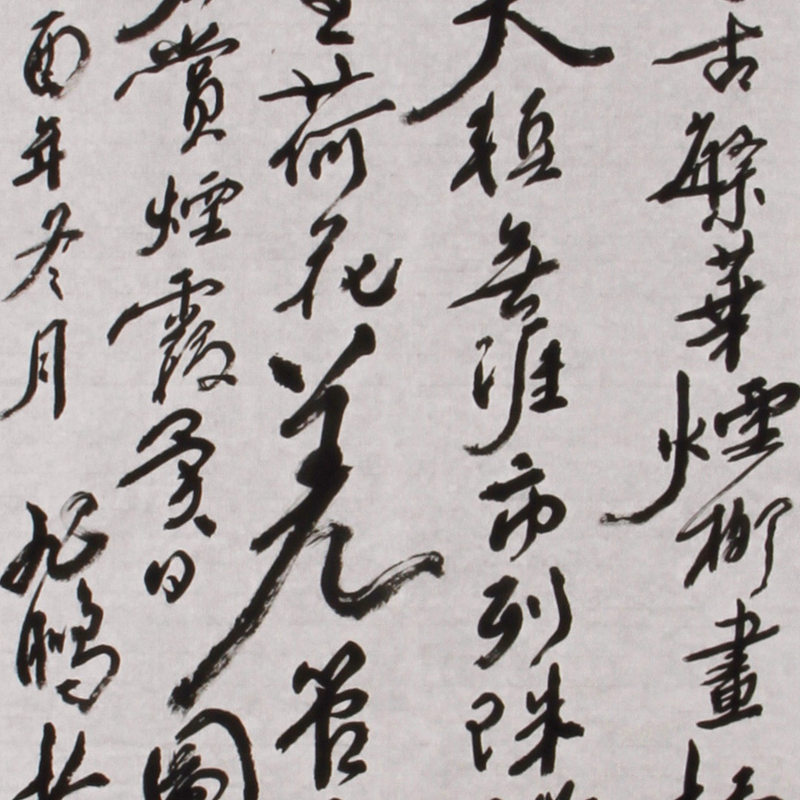 古繁華煙柳畫
天塹無涯市列珠
里荷花羌管
賞煙霞異日圖
酉年冬月旭鵬